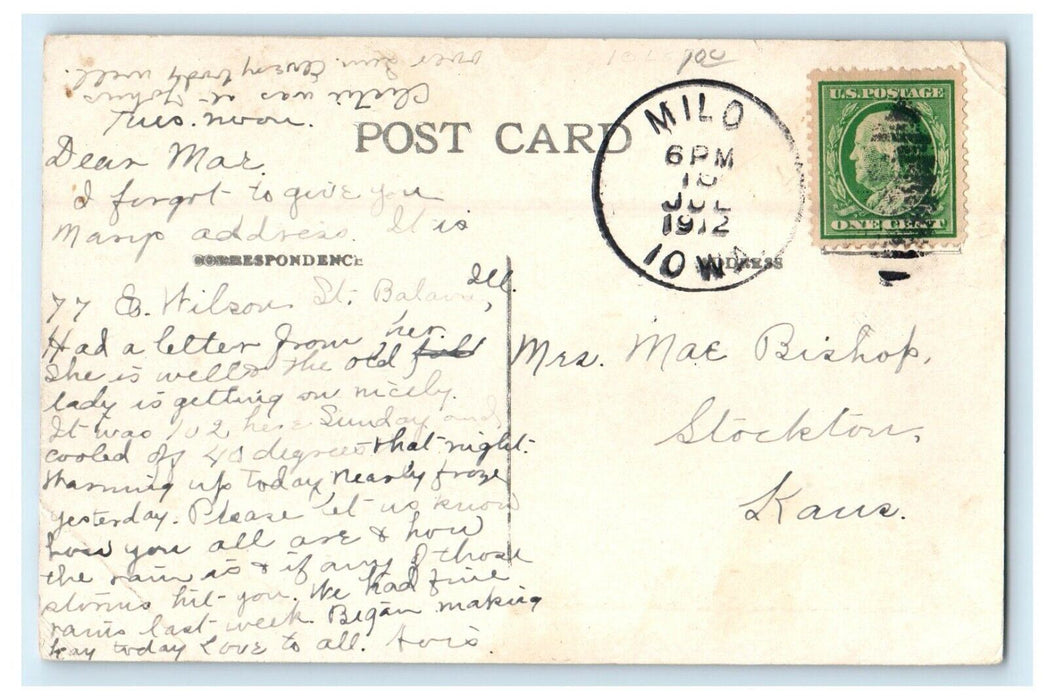 Tues. noon.
Dear Mae.
I forgot to give you
address. It is
77 E. Wilson St. Ill.
Had a letter from her.
She is well & the old
lady is getting on nicely.
It was 102 here Sunday and
cooled off 40 degrees that night.
Warming up today, nearly froze
yesterday. Please let us know
how you all are & how
the rain is & if any of those
storms hit you. We had fine
rains last week. Began making
hay today Love to all. Avis
was at John's
over Sun. Everybody well.
POST CARD
CORRESPONDENCE
ADDRESS
MILO
6 PM
JUL
1912
IOWA
U.S. POSTAGE
ONE CENT
Mrs. Mae Bishop,
Stockton,
Kans.